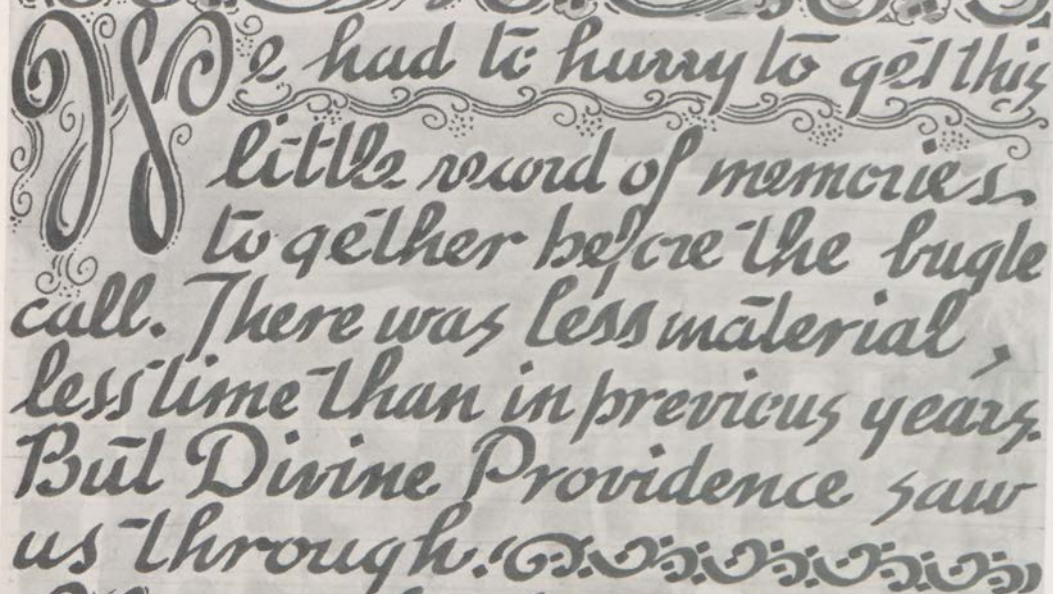 We had to hurry to get this
little record of memories
to gether before the bugle
call. There was less material,
less time than in previous years.
But Divine Providence saw
us through.